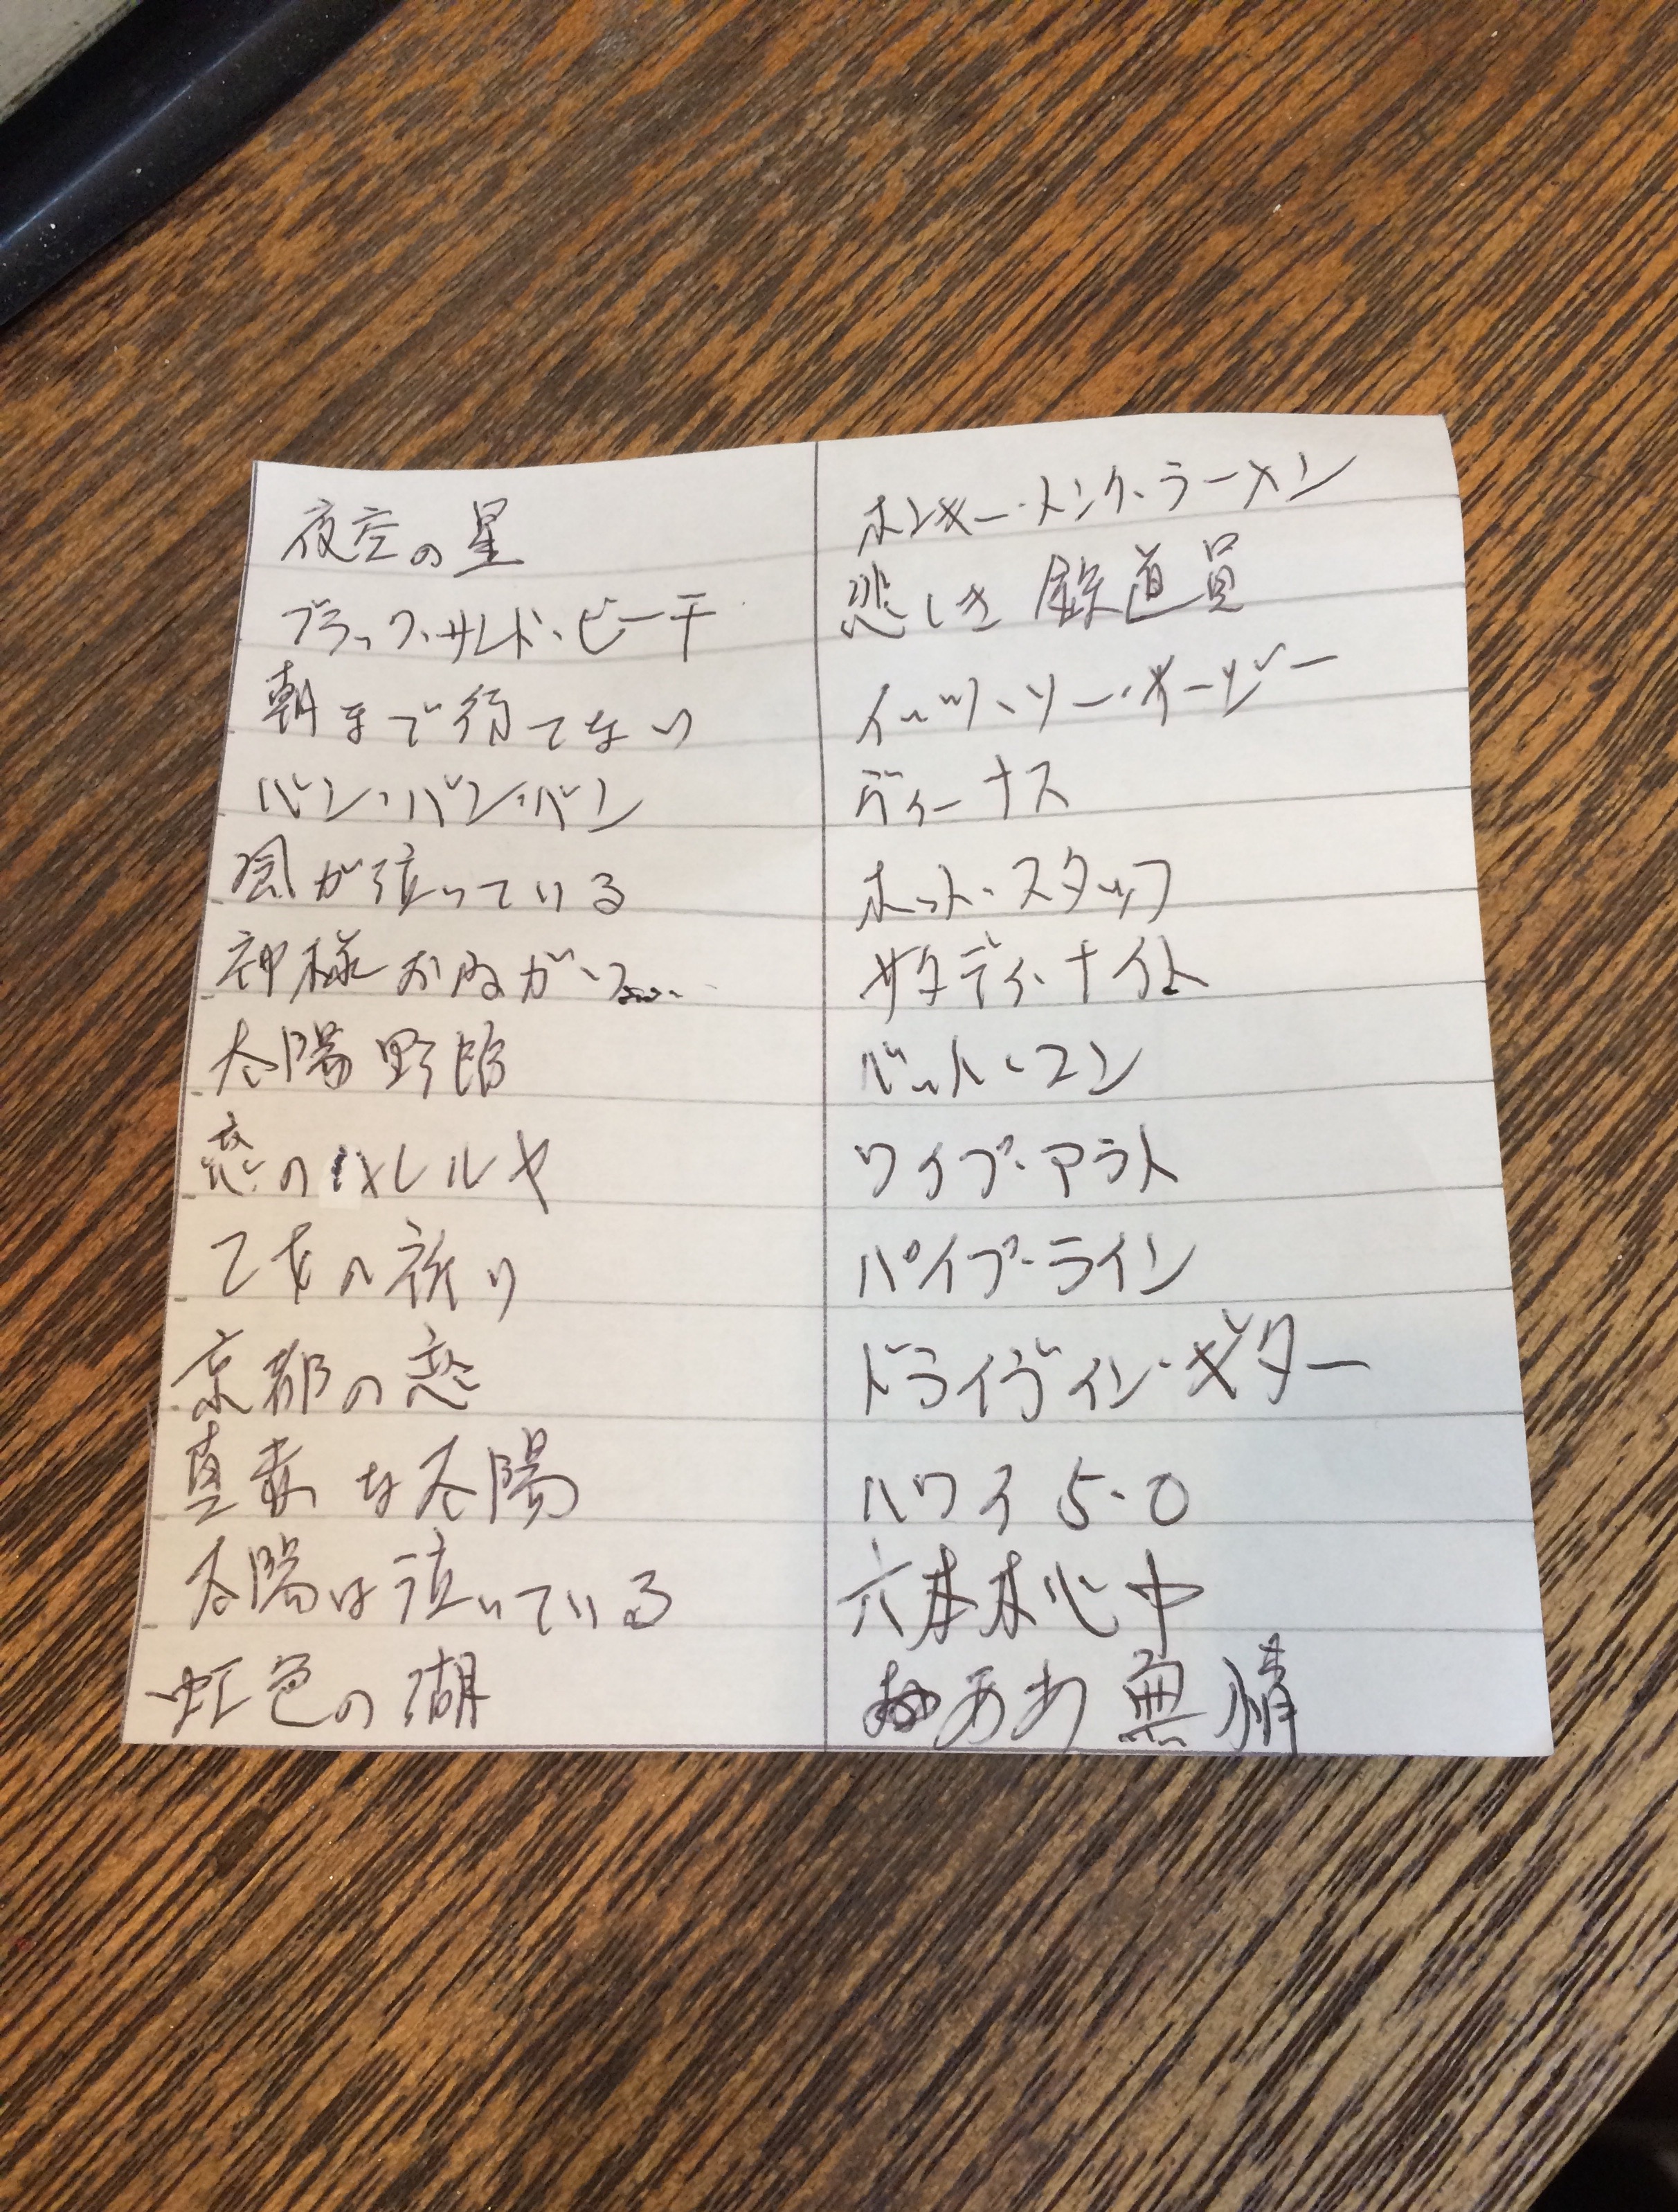 夜空の星
ブラック・サンド・ビーチ
朝まで待てない
バン・バン・バン
風が泣いている
神様おねがい
太陽野郎
恋のハレルヤ
乙女の祈り
京都の恋
真赤な太陽
太陽は泣いている
虹色の湖
ホンキー・トンク・ラーメン
悲しき鉄道員
イッツ・ソー・イージー
ヴィーナス
ホット・スタッフ
サタディ・ナイト
バット・マン
ワイプ・アウト
パイプ・ライン
ドライヴィン・ギター
ハワイ5-0
六本木心中
ああ無情